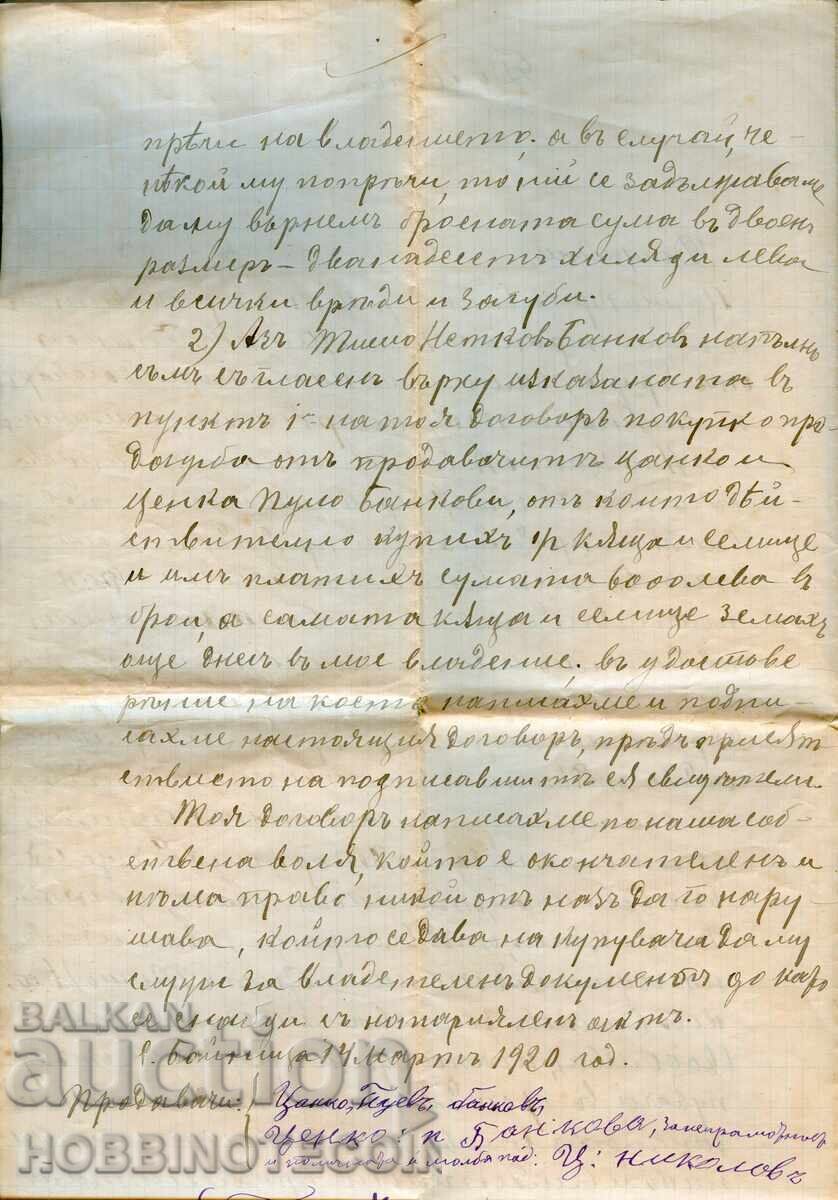 прѣчи на владението, а въ случай, че
нѣкой му попрѣчи, то ний се задължаваме
да му върнемъ броената сума въ двоенъ
размѣръ – дванадесетъ хиляди лева
и всички врѣди и загуби.
2) Азъ Нетковъ Банковъ напълно
съмъ съгласенъ върху изказаната въ
пунктъ 1й на тоя договоръ покупко про-
дажба отъ продавачитѣ Цанко и
Ценка Банкови, отъ които дѣй-
ствително купихъ къща и селище
и имъ платихъ сумата 6000 лева въ
брой, а самата къща и селище земахъ
още днесъ въ мое владение. въ удостове
рѣние на което написахме и подпи-
сахме настоящия договоръ, прѣдъ присѫт
ствието на подписавшитѣ ся свидѣтели.
Тоя договоръ написахме по наша соб-
ствена воля, който е окончателенъ и
нѣма право никой отъ насъ да го нару
шава, който се дава на купувача да му
служи за владетеленъ документъ до като
се снабди съ натариаленъ актъ.
с. Бойница 14 Мартъ 1920 год.
Продавачи: Цанко Пуевъ Банковъ,
Ценка: П Банкова, за неграмотностъ
и молба под: Ц: Николовъ
BALKAN
auction
HOBBINOTECOIN